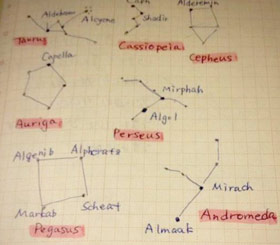 Aldebaran
Alcyone
Taurus
Caph
Shedir
Cassiopeia
Alderamin
Cepheus
Capella
Auriga
Mirphah
Algol
Perseus
Algenib
Alpheratz
Markab
Scheat
Pegasus
Mirach
Almaak
Andromeda